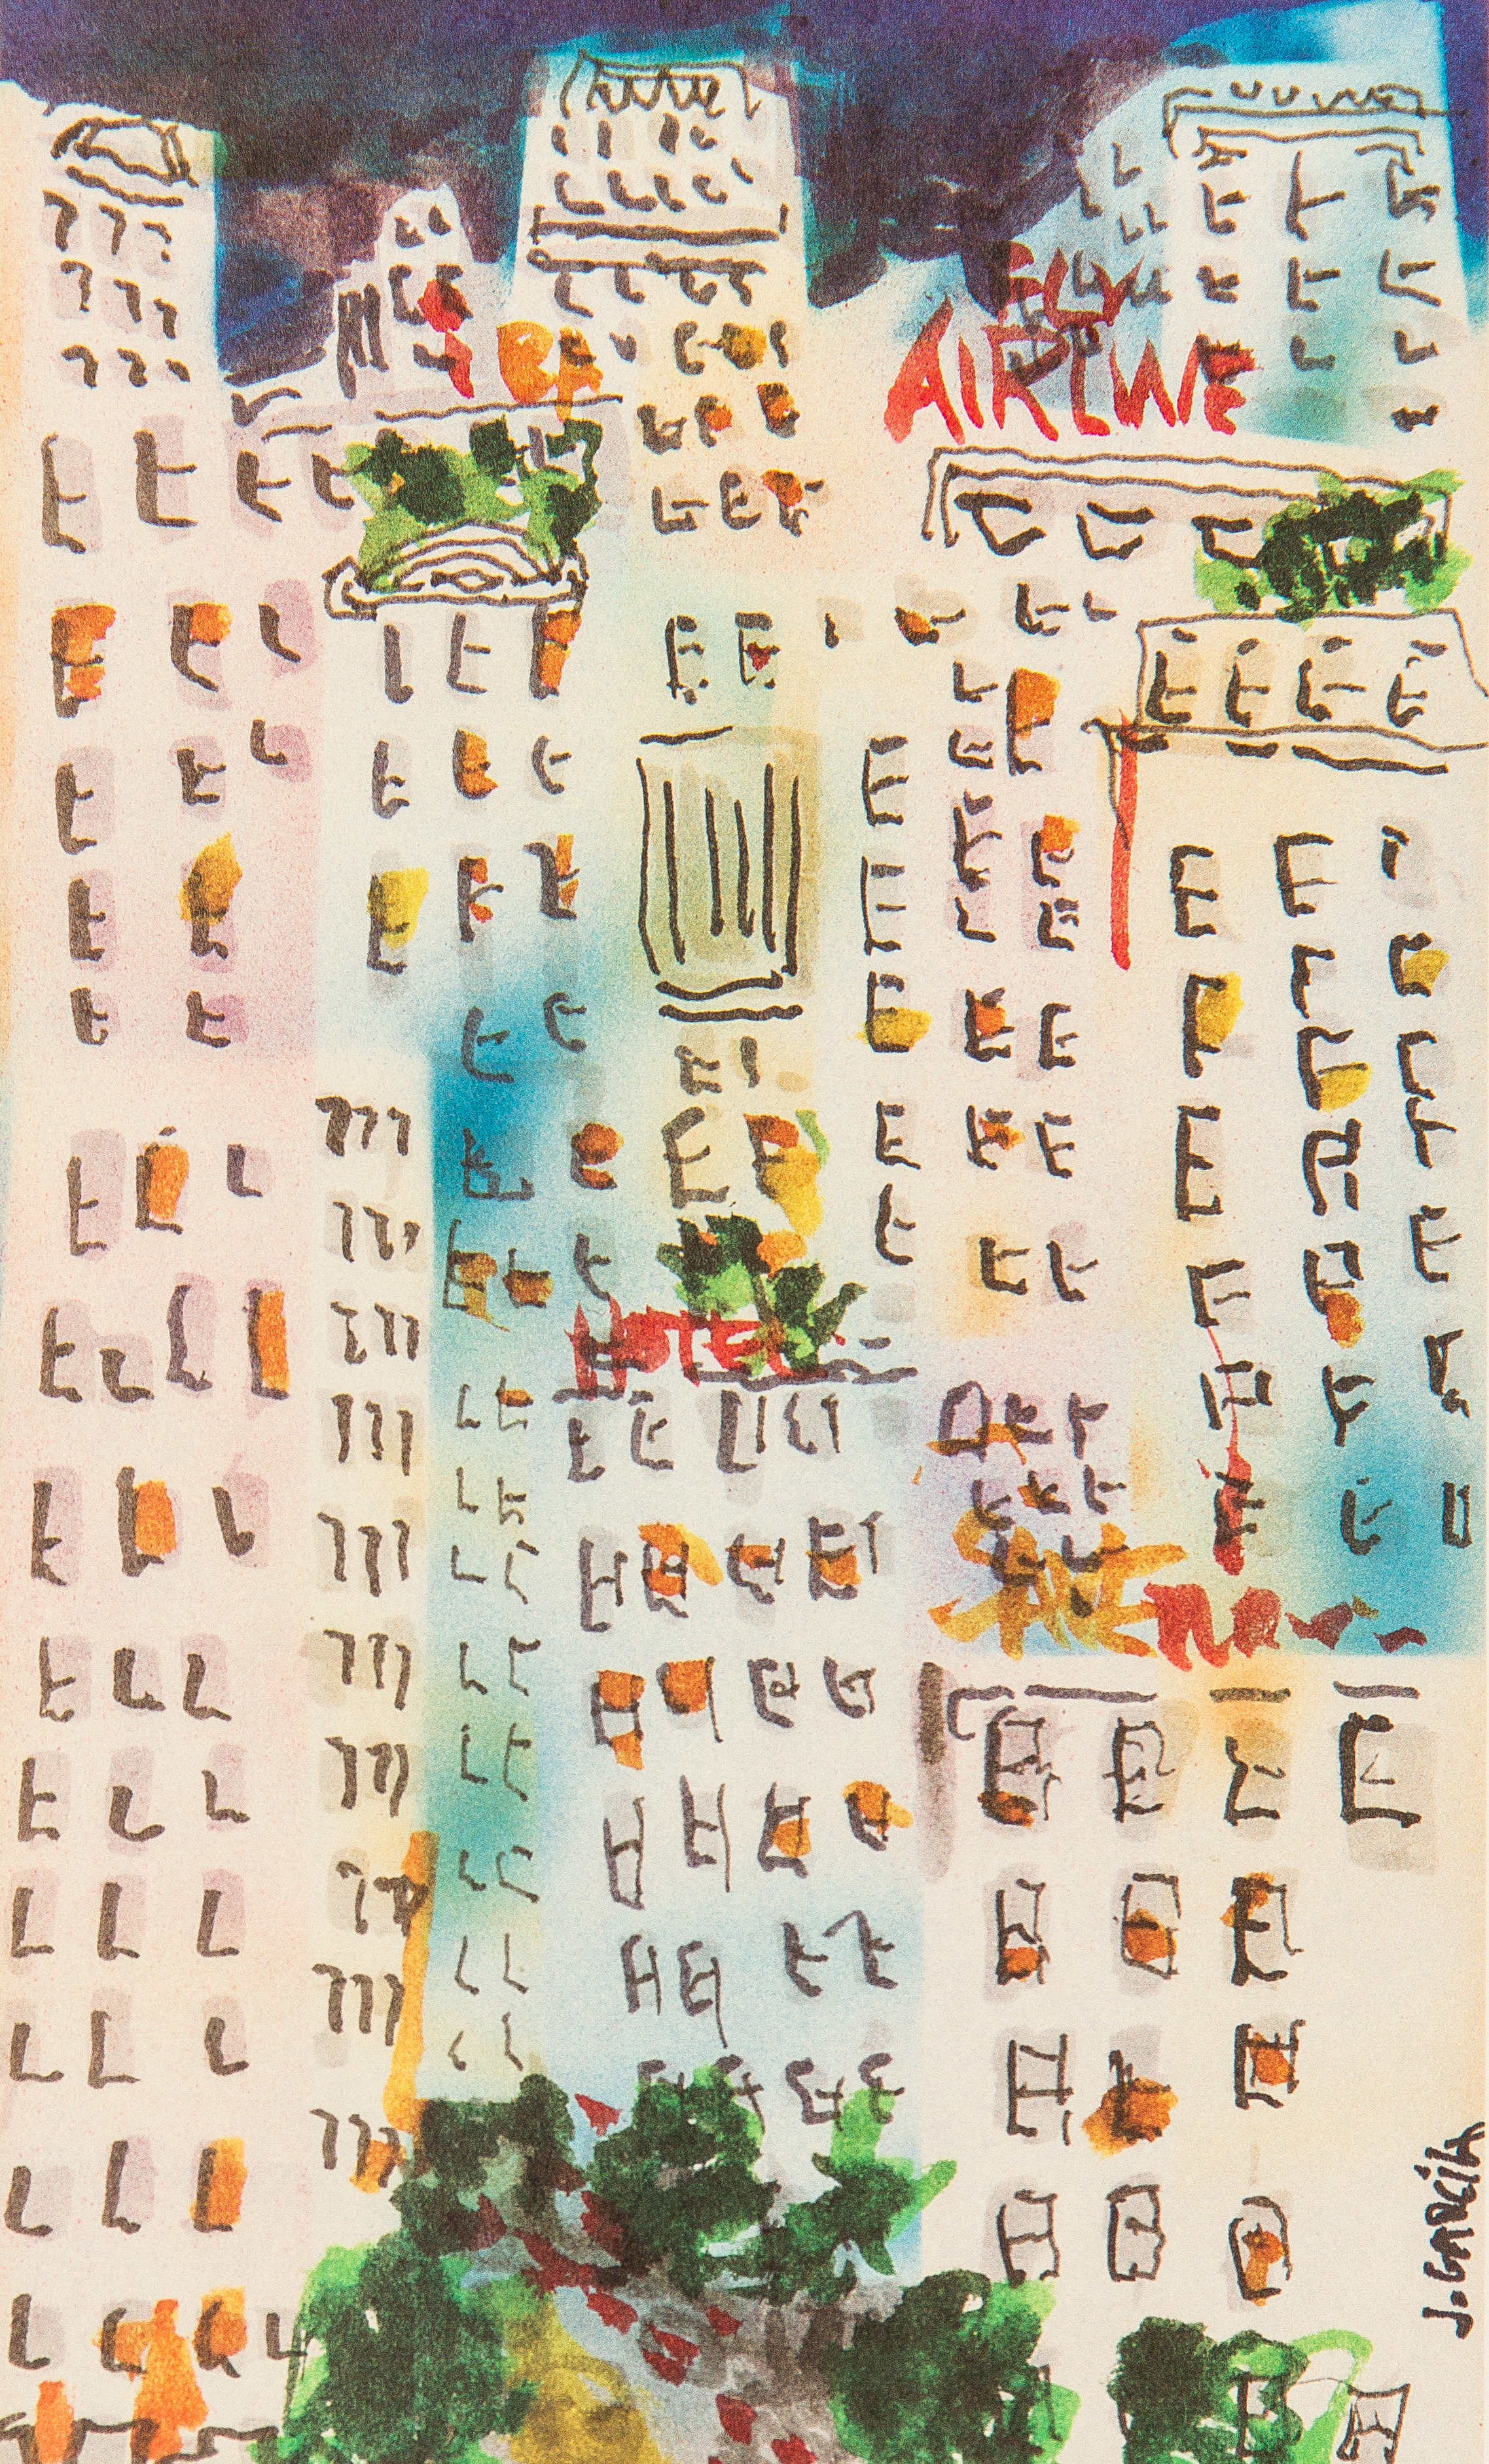 FLY
AIRLINE
HOTEL
SAVE
J. GARCIA